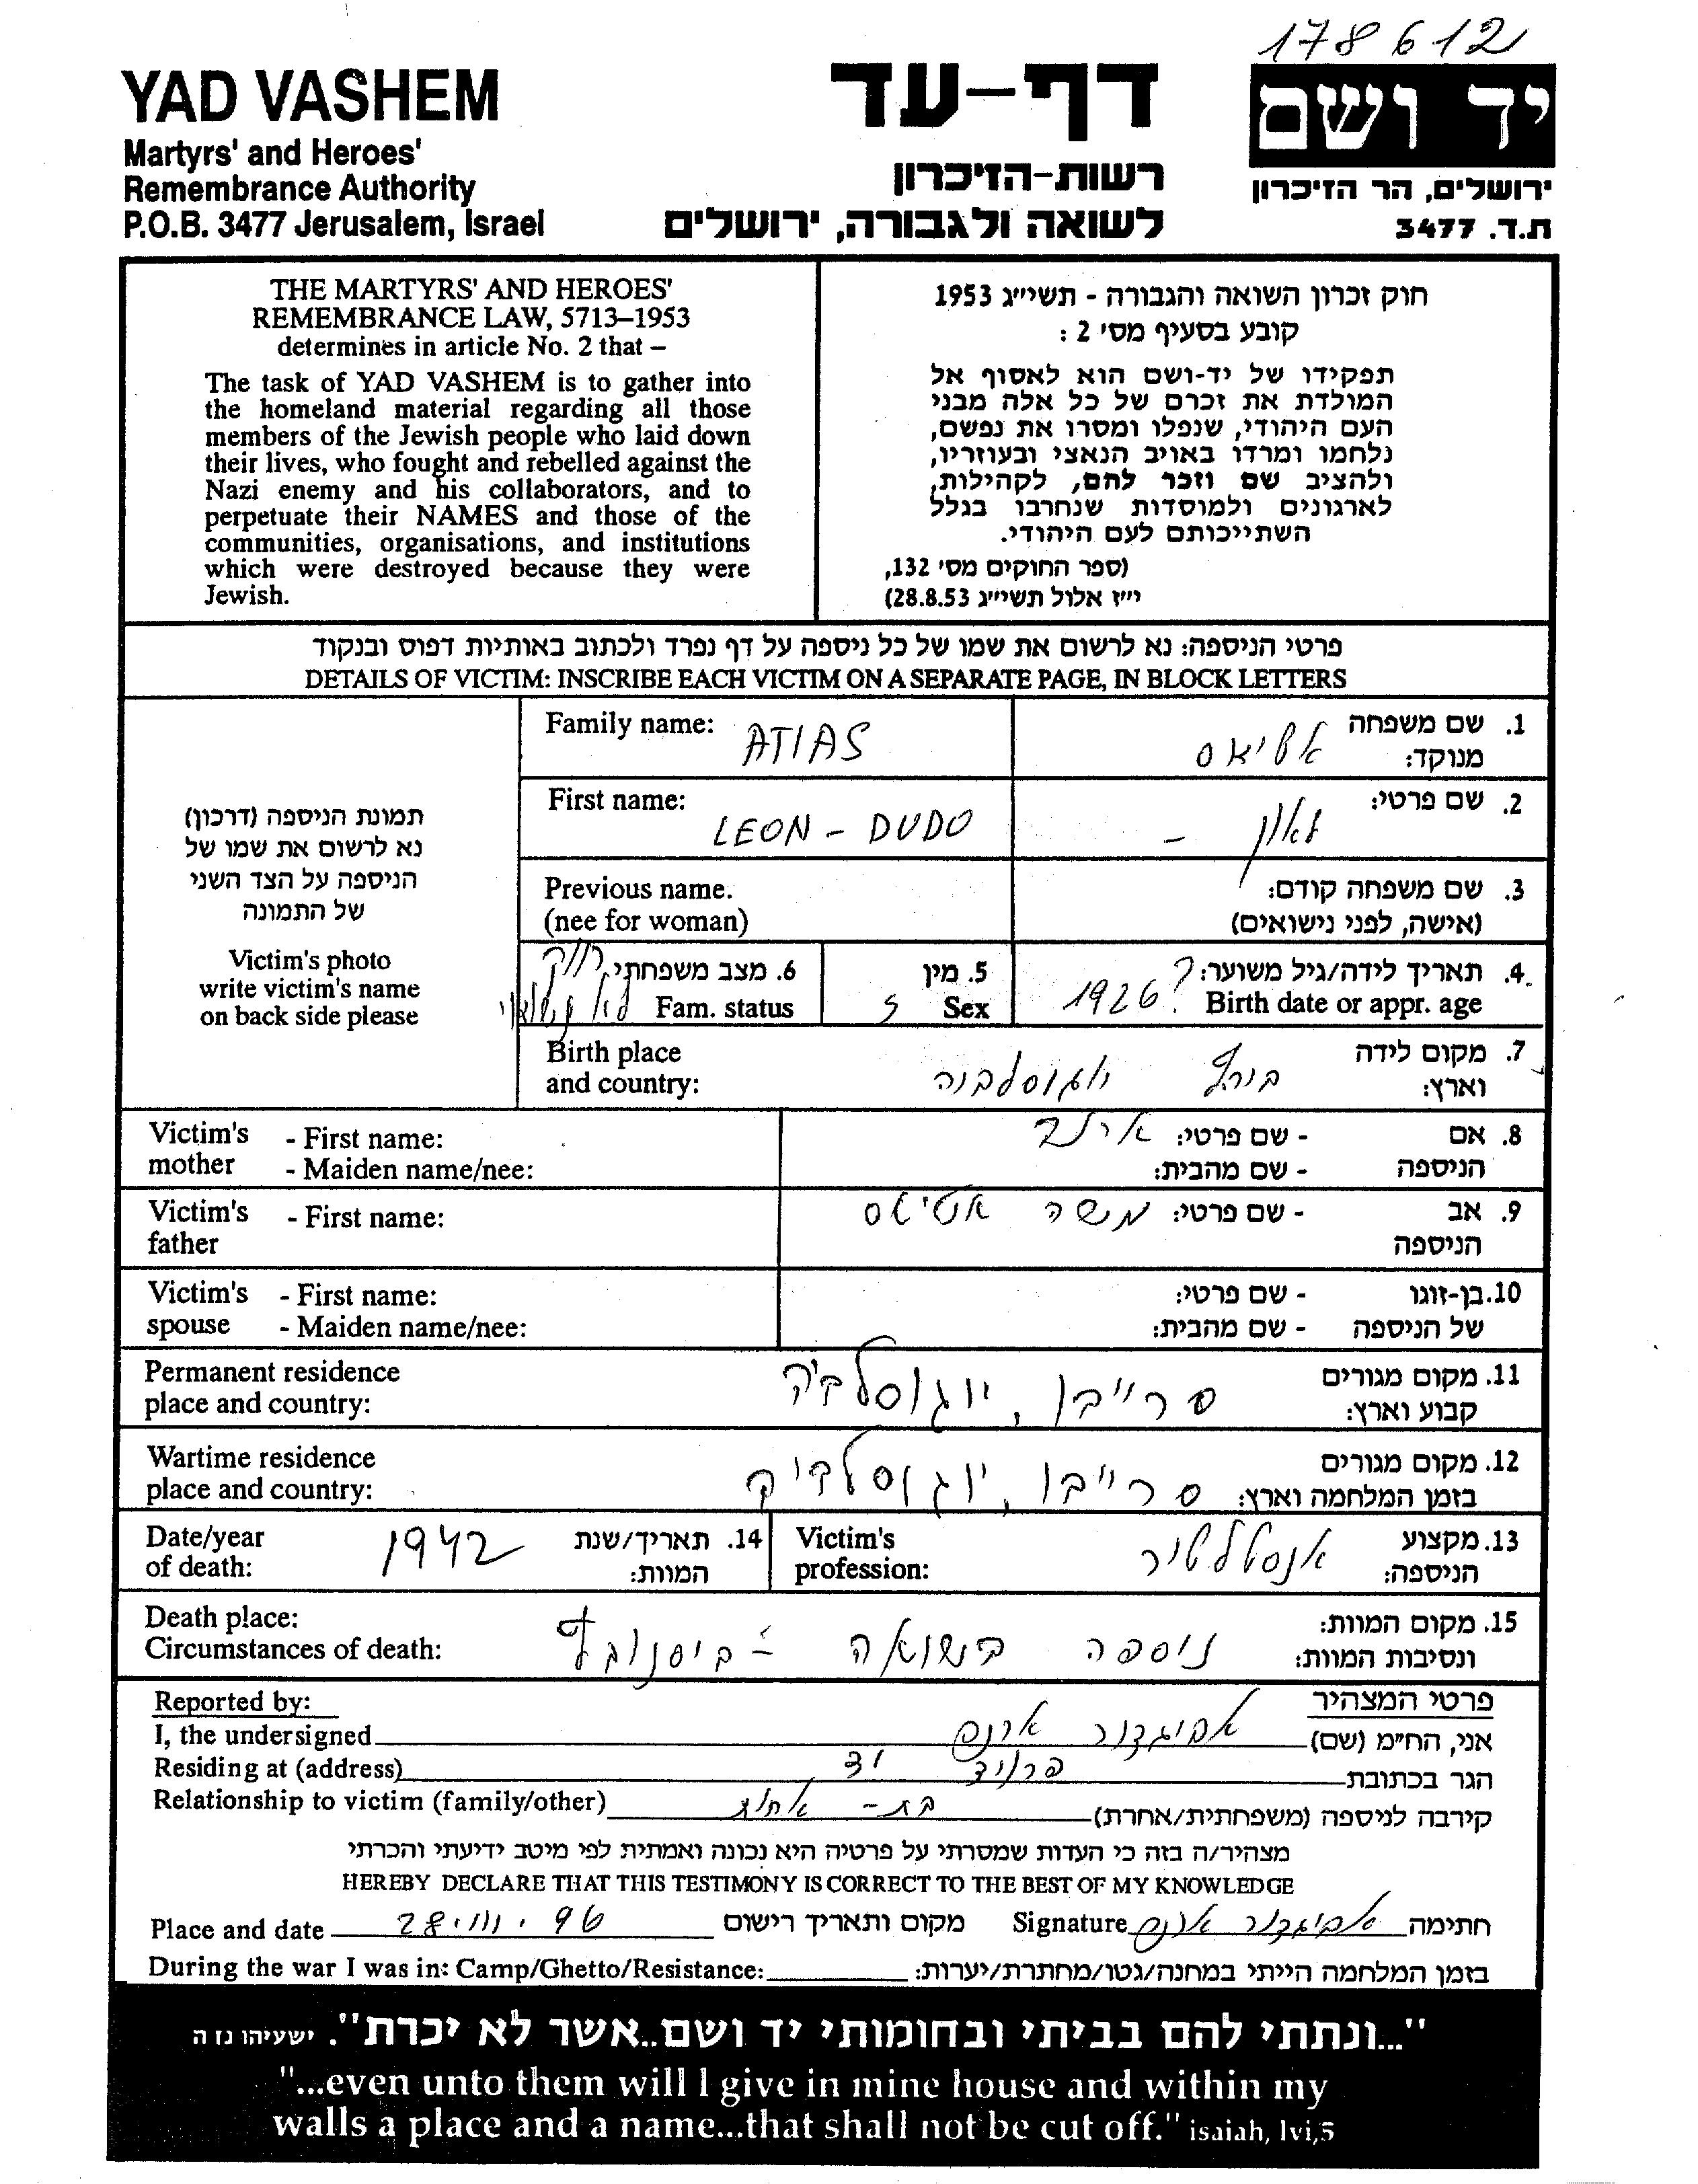 178612
YAD VASHEM
Martyrs' and Heroes'
Remembrance Authority
P.O.B. 3477 Jerusalem, Israel
דף-עד
רשות-הזיכרון
לשואה ולגבורה, ירושלים
יד ושם
ירושלים, הר הזיכרון
ת.ד. 3477
THE MARTYRS' AND HEROES'
REMEMBRANCE LAW, 5713–1953
determines in article No. 2 that –
The task of YAD VASHEM is to gather into
the homeland material regarding all those
members of the Jewish people who laid down
their lives, who fought and rebelled against the
Nazi enemy and his collaborators, and to
perpetuate their NAMES and those of the
communities, organisations, and institutions
which were destroyed because they were
Jewish.
חוק זכרון השואה והגבורה - תשי״ג 1953
קובע בסעיף מס׳ 2 :
תפקידו של יד-ושם הוא לאסוף אל
המולדת את זכרם של כל אלה מבני
העם היהודי, שנפלו ומסרו את נפשם,
נלחמו ומרדו באויב הנאצי ובעוזריו,
ולהציב שם וזכר להם, לקהילות,
לארגונים ולמוסדות שנחרבו בגלל
השתייכותם לעם היהודי.
(ספר החוקים מס׳ 132,
י״ז אלול תשי״ג 28.8.53)
פרטי הניספה: נא לרשום את שמו של כל ניספה על דף נפרד ולכתוב באותיות דפוס ובנקוד
DETAILS OF VICTIM: INSCRIBE EACH VICTIM ON A SEPARATE PAGE, IN BLOCK LETTERS
תמונת הניספה (דרכון)
נא לרשום את שמו של
הניספה על הצד השני
של התמונה
Victim's photo
write victim's name
on back side please
Family name: ATIAS
1. שם משפחה מנוקד: אטיאס
First name: LEON - DUDO
2. שם פרטי: לאון -
Previous name.
(nee for woman)
3. שם משפחה קודם:
(אישה, לפני נישואים)
6. מצב משפחתי: רווק
Fam. status לא
5. מין
Sex
4. תאריך לידה/גיל משוער: ?
Birth date or appr. age 1926
Birth place
and country:
7. מקום לידה
וארץ: יוגוסלביה
Victim's mother - First name:
- Maiden name/nee:
8. אם הניספה - שם פרטי:
- שם מהבית:
Victim's father - First name:
9. אב הניספה - שם פרטי: משה אטיאס
Victim's spouse - First name:
- Maiden name/nee:
10. בן-זוגו של הניספה - שם פרטי:
- שם מהבית:
Permanent residence
place and country:
11. מקום מגורים
קבוע וארץ: סרייבו, יוגוסלביה
Wartime residence
place and country:
12. מקום מגורים
בזמן המלחמה וארץ: סרייבו, יוגוסלביה
Date/year
of death: 1942
14. תאריך/שנת
המוות:
Victim's
profession:
13. מקצוע
הניספה: אנסטלטור
Death place:
Circumstances of death:
15. מקום המוות:
ונסיבות המוות: ניספה בשואה
Reported by:
פרטי המצהיר
I, the undersigned
אני, הח״מ (שם) אביגדור
Residing at (address)
הגר בכתובת פרויד
Relationship to victim (family/other)
קירבה לניספה (משפחתית/אחרת) בת-
מצהיר/ה בזה כי העדות שמסרתי על פרטיה היא נכונה ואמתית לפי מיטב ידיעתי והכרתי
HEREBY DECLARE THAT THIS TESTIMONY IS CORRECT TO THE BEST OF MY KNOWLEDGE
Place and date 28.III.96 מקום ותאריך רישום
Signature אביגדור חתימה
During the war I was in: Camp/Ghetto/Resistance:
בזמן המלחמה הייתי במחנה/גטו/מחתרת/יערות:
"...ונתתי להם בביתי ובחומותי יד ושם..אשר לא יכרת". ישעיהו נז ה
"...even unto them will I give in mine house and within my
walls a place and a name...that shall not be cut off." isaiah, lvi,5